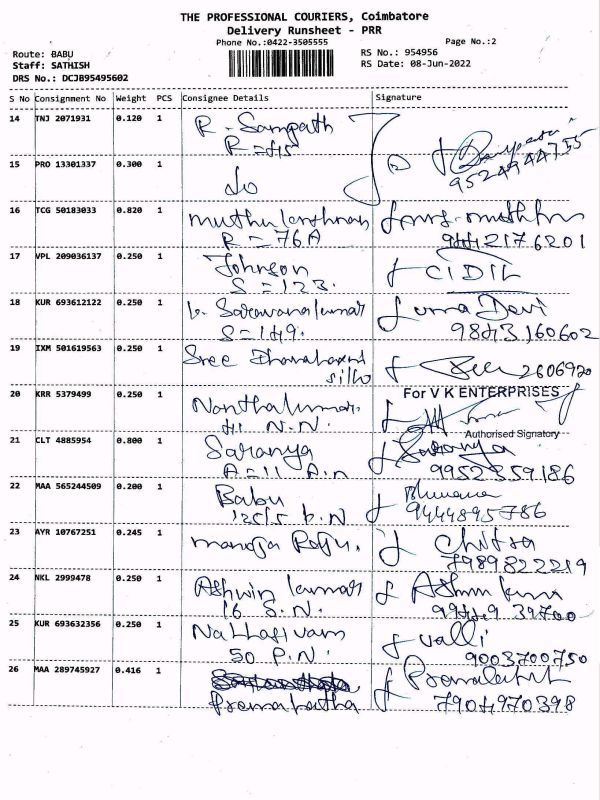 THE PROFESSIONAL COURIERS, Coimbatore
Delivery Runsheet - PRR
Phone No.:0422-3505555
Page No.:2
Route: BABU
RS No.: 954956
Staff: SATHISH
RS Date: 08-Jun-2022
DRS No.: DCJB95495602
S No Consignment No Weight PCS Consignee Details Signature
14 TNJ 2071931 0.120 1 R. Sampath
9524944755
15 PRO 13301337 0.300 1 do
16 TCG 50183033 0.820 1
R = 76A 9442176201
17 VPL 209036137 0.250 1 Johnson CIDIL
S = 123.
18 KUR 693612122 0.250 1 Uma Devi
S = 149. 9843160602
19 IXM 501619563 0.250 1 Sree
2606920
20 KRR 5379499 0.250 1 Nanthakumar. For V K ENTERPRISES
41 N.N. Authorised Signatory
21 CLT 4885954 0.800 1 Saranya Saranya
A=11 A.n 9952359186
22 MAA 565244509 0.200 1 Babu Bhuvana
125/5 b.N 9444895786
23 AYR 10767251 0.245 1 manoja Raju. Chitra
7989822219
24 NKL 2999478 0.250 1 Ashwin kumar
16 S.N.
25 KUR 693632356 0.250 1 Nallasivam valli
50 P.N. 9003700750
26 MAA 289745927 0.416 1
Premalatha 7904970398